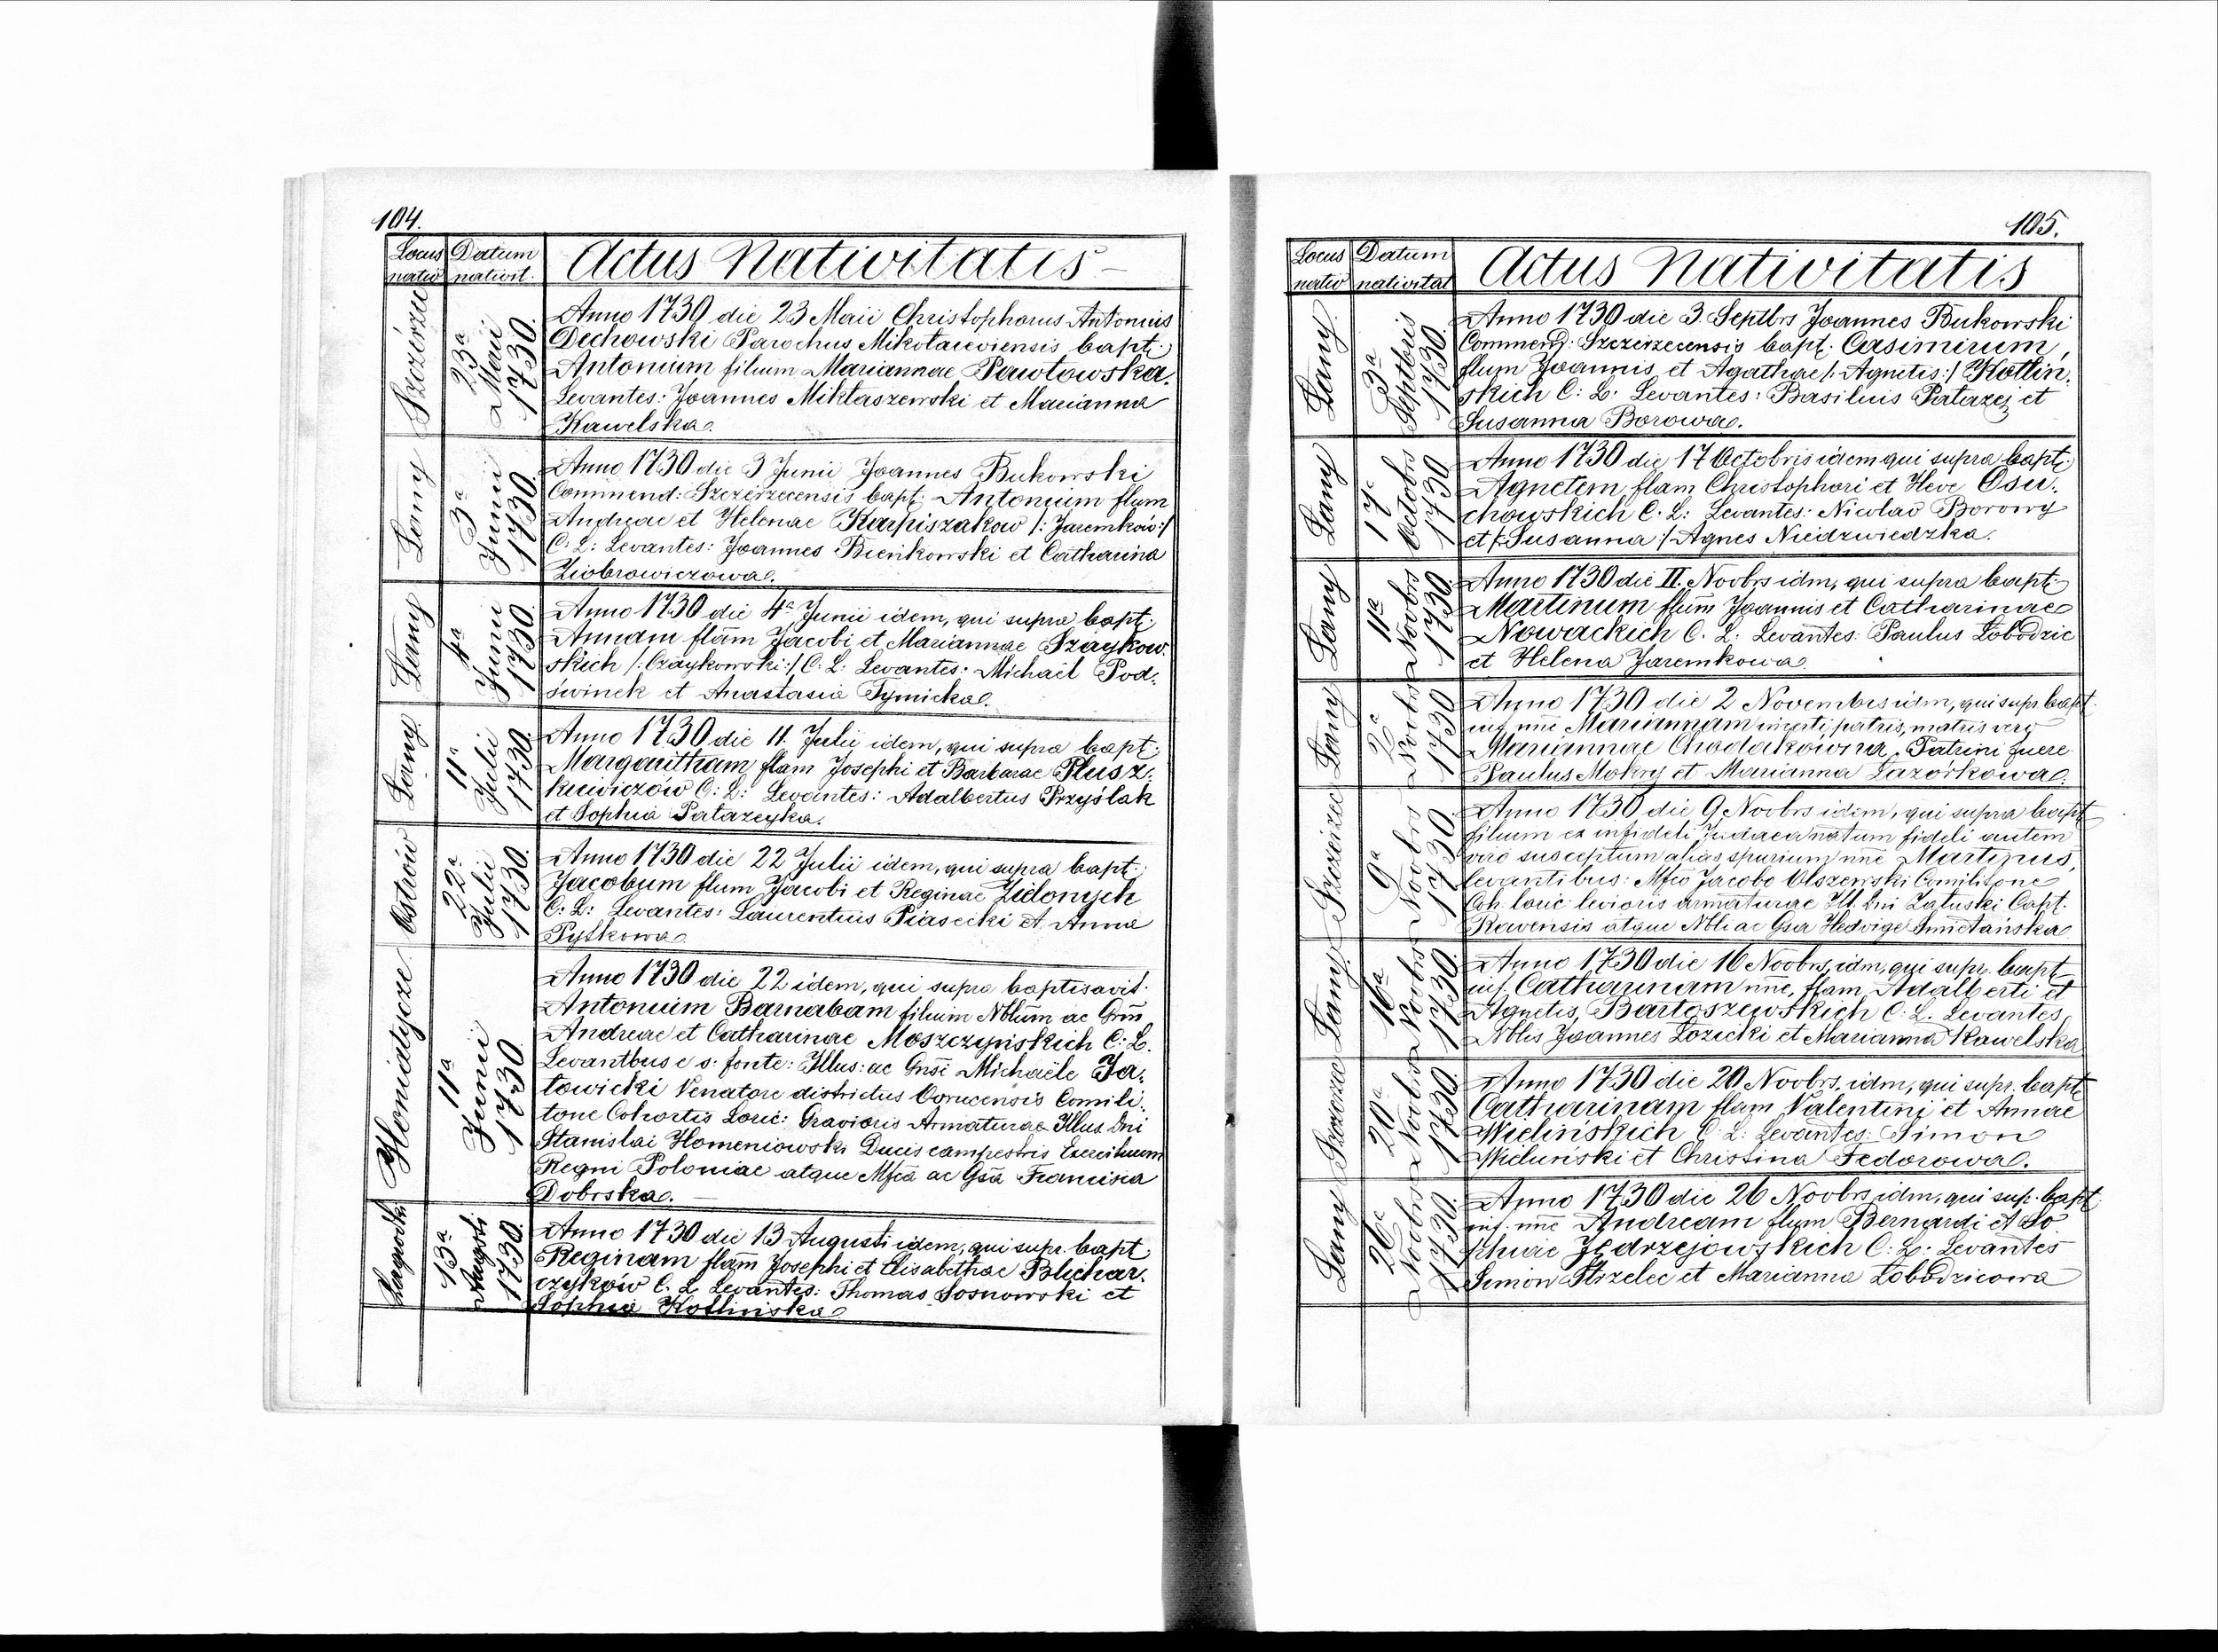 104.
Locus nativ
Datum nativit.
Actus Nativitatis
Szczérzec
23a Maii 1730.
Anno 1730 die 23 Maii Christophorus Antonius
Dechowski Parochus Mikołaieviensis bapt:
Antonium filium Mariannae Pawłowska.
Levantes: Joannes Mikłaszewski et Marianna
Kawelska.
Łany
3a Junii 1730.
Anno 1730 die 3 Junii Joannes Bukowski
Commend: Szczerzecensis bapt: Antonium flum
Andreae et Helenae Karpiszaków /: Jaremków:/
C: L: Levantes: Joannes Bieńkowski et Catharina
Ziobrowiczowa.
Łany
4a Junii 1730.
Anno 1730 die 4a Junii idem, qui supra bapt:
Annam flam Jacobi et Mariannae Szaykow.
skich /: Czaykowski:/ C: L: Levantes: Michaël Pod.
świnek et Anastasia Tymicka.
Łany.
11a Julii 1730.
Anno 1730 die 11. Julii idem, qui supra bapt:
Margaritham flam Josephi et Barbarae Plusz.
kiewiczów C: L: Levantes: Adalbertus Przyślak
et Sophia Patazeyka.
Ostrów
22a Julii 1730.
Anno 1730 die 22 Julii idem, qui supra bapt:
Jacobum flum Jacobi et Reginae Zielonych
C: L: Levantes: Laurentius Piasecki et Anna
Pytkowa
Hłonidtycze
11a Junii 1730
Anno 1730 die 22 idem, qui supra baptisavit
Antonium Barnabam filium Nblium ac Gnm
Andreae et Catharinae Moszczyńskich C: L.
Levantbus e s: fonte: Illus: ac Gnsi Michaële Ja.
towicki Venatore districtus Ovrucensis Comili.
tone Cohortis Loric: Gravioris Armaturae Illus. Dni
Stanislai Homeniowski Ducis campestris Exercituum
Regni Poloniae atque Mfca ac Gsa Francisca
Dobrska.
Zagródki
13a Augsti 1730.
Anno 1730 die 13 Augusti idem, qui supr. bapt
Reginam flam Josephi et Elisabethae Blichar.
czyków C. L. Levantes: Thomas Sosnowski et
Sophia Kotlińska
105.
Locus nativ
Datum nativitat
Actus Nativitatis
Łany
3a Septbis 1730.
Anno 1730 die 3. Septbrs Joannes Bukowski
Commend: Szczerzecensis bapt: Casimirum,
flum Joannis et Agathae /: Agnetis:/ Kotlin.
skich C: L: Levantes: Basilius Patazey et
Susanna Borowa.
Łany
17a Octobrs 1730
Anno 1730 die 17 Octobris idem qui supra bapt:
Agnetem flam Christophori et Heve Osu.
chowskich C. L: Levantes: Nicolao Borowy
et /: Susanna:/ Agnes Niedzwiedzka.
Łany
11a Novbrs 1730.
Anno 1730 die II. Novbrs idm, qui supra bapt:
Martinum flum Joannis et Catharinae
Nowackich C. L: Levantes: Paulus Łobodzic
et Helena Jaremkowa
Łany
2a Novbrs 1730
Anno 1730 die 2 Novembris idm, qui supr bapt.
inf. nne Mariannam incerti patris, matris vero
Mariannae Chodakowina. Patrini fuere
Paulus Mokry et Marianna Lazórkowa.
Szczérzec
9a Novbrs 1730
Anno 1730 die 9 Novbrs idem, qui supra bapt
filium ex infideli Judaea natum fideli autem
viro susceptum alias spurium nne Martinus,
levantibus: Mfco Jacobo Olszewski Comilitone
Coh. loric levioris armaturae Ill. Dni Załuski Capt.
Rawensis atque Nbli ac Gsa Hedvige Śmietańska
Łany
16a Novbrs 1730.
Anno 1730 die 16 Novbrs idm, qui supr. bapt
inf. Catharinam nne, flam Adalberti et
Agnetis Bartoszewskich C. L. Levantes
Nblis Joannes Łozicki et Marianna Kawelska
20a Novbrs 1730.
Anno 1730 die 20 Novbrs. idm, qui supr. bapt
Catharinam flam Valentini et Annae
Wielińskich C: L: Levantes: Simon
Wieluński et Christina Fedorowa.
Łany
26a Novbrs 1730.
Anno 1730 die 26 Novbrs idm, qui sup. bapt
inf. nne Andream flum Bernardi et So
phiae Jędrzejowskich C: L: Levantes
Simon Strzelec et Marianna Łobodzicowa